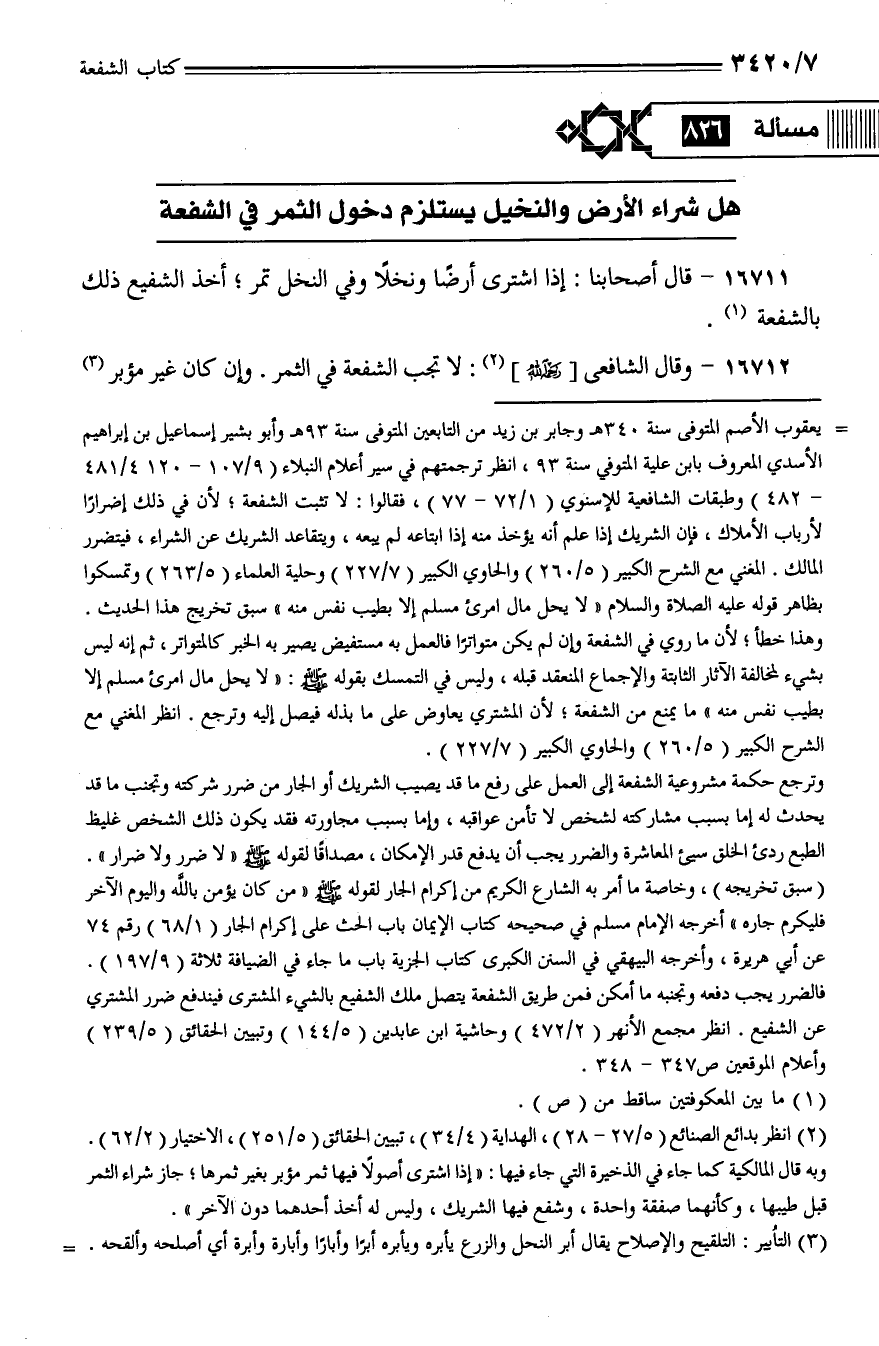 ٣٤٢٠/٧ كتاب الشفعة
مسألة ٨٢٦
هل شراء الأرض والنخيل يستلزم دخول الثمر في الشفعة
١٦٧١١ - قال أصحابنا : إذا اشترى أرضًا ونخلًا وفي النخل تمر ؛ أخذ الشفيع ذلك
بالشفعة (١) .
١٦٧١٢ - وقال الشافعى [ رحمه الله ] (٢) : لا تجب الشفعة في الثمر . وإن كان غير مؤبر (٣)
= يعقوب الأصم المتوفى سنة ٣٤٠هـ وجابر بن زيد من التابعين المتوفى سنة ٩٣هـ وأبو بشير إسماعيل بن إبراهيم
الأسدي المعروف بابن علية المتوفي سنة ٩٣ ، انظر ترجمتهم في سير أعلام النبلاء ( ١٠٧/٩ - ١٢٠ ٤٨١/٤
- ٤٨٢ ) وطبقات الشافعية للإسنوي ( ٧٢/١ - ٧٧ ) ، فقالوا : لا تثبت الشفعة ؛ لأن في ذلك إضرارًا
لأرباب الأملاك ، فإن الشريك إذا علم أنه يؤخذ منه إذا ابتاعه لم يبعه ، ويتقاعد الشريك عن الشراء ، فيتضرر
المالك . المغني مع الشرح الكبير ( ٢٦٠/٥ ) والحاوي الكبير ( ٢٢٧/٧ ) وحلية العلماء ( ٢٦٣/٥ ) وتمسكوا
بظاهر قوله عليه الصلاة والسلام « لا يحل مال امرئ مسلم إلا بطيب نفس منه » سبق تخريج هذا الحديث .
وهذا خطأ ؛ لأن ما روي في الشفعة وإن لم يكن متواترًا فالعمل به مستفيض يصير به الخبر كالمتواتر ، ثم إنه ليس
بشيء لمخالفة الآثار الثابتة والإجماع المنعقد قبله ، وليس في التمسك بقوله ﷺ : « لا يحل مال امرئ مسلم إلا
بطيب نفس منه » ما يمنع من الشفعة ؛ لأن المشتري يعاوض على ما بذله فيصل إليه وترجع . انظر المغني مع
الشرح الكبير ( ٢٦٠/٥ ) والحاوي الكبير ( ٢٢٧/٧ ) .
وترجع حكمة مشروعية الشفعة إلى العمل على رفع ما قد يصيب الشريك أو الجار من ضرر شركته وتجنب ما قد
يحدث له إما بسبب مشاركته لشخص لا تأمن عواقبه ، وإما بسبب مجاورته فقد يكون ذلك الشخص غليظ
الطبع ردئ الخلق سيئ المعاشرة والضرر يجب أن يدفع قدر الإمكان ، مصداقًا لقوله ﷺ « لا ضرر ولا ضرار » .
( سبق تخريجه ) ، وخاصة ما أمر به الشارع الكريم من إكرام الجار لقوله ﷺ « من كان يؤمن بالله واليوم الآخر
فليكرم جاره » أخرجه الإمام مسلم في صحيحه كتاب الإيمان باب الحث على إكرام الجار ( ٦٨/١ ) رقم ٧٤
عن أبي هريرة ، وأخرجه البيهقي في السنن الكبرى كتاب الجزية باب ما جاء في الضيافة ثلاثة ( ١٩٧/٩ ) .
فالضرر يجب دفعه وتجنبه ما أمكن فمن طريق الشفعة يتصل ملك الشفيع بالشيء المشترى فيندفع ضرر المشتري
عن الشفيع . انظر مجمع الأنهر ( ٤٧٢/٢ ) وحاشية ابن عابدين ( ١٤٤/٥ ) وتبيين الحقائق ( ٢٣٩/٥ )
وأعلام الموقعين ص٣٤٧ - ٣٤٨ .
(١) ما بين المعكوفتين ساقط من ( ص ) .
(٢) انظر بدائع الصنائع ( ٢٧/٥ - ٢٨ ) ، الهداية ( ٣٤/٤ ) ، تبيين الحقائق ( ٢٥١/٥ ) ، الاختيار ( ٦٢/٢ ) .
وبه قال المالكية كما جاء في الذخيرة التي جاء فيها : « إذا اشترى أصولًا فيها ثمر مؤبر بغير ثمرها ؛ جاز شراء الثمر
قبل طيبها ، وكأنهما صفقة واحدة ، وشفع فيها الشريك ، وليس له أخذ أحدهما دون الآخر » .
(٣) التأبير : التلقيح والإصلاح يقال أبر النحل والزرع يأبره ويأبره أبرًا وأبارًا وأبارة وأبرة أي أصلحه وألقحه . =